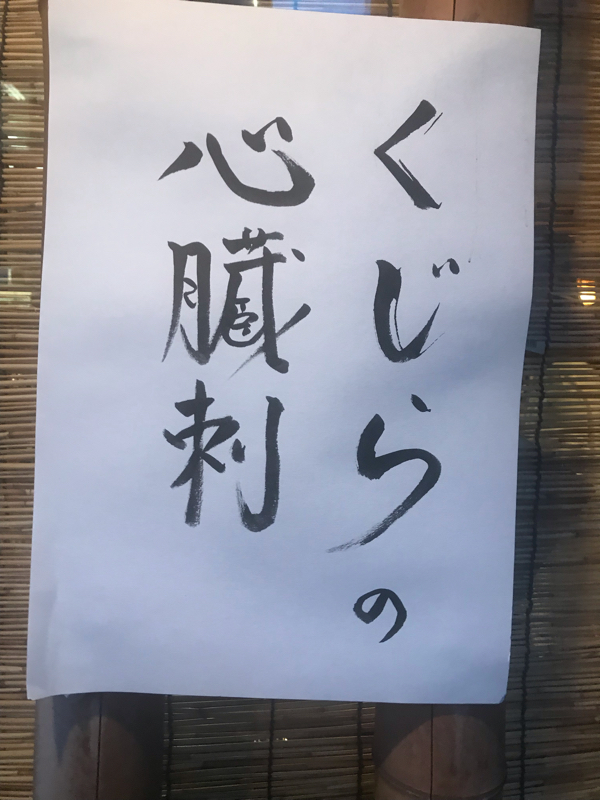 くじらの
心臓刺